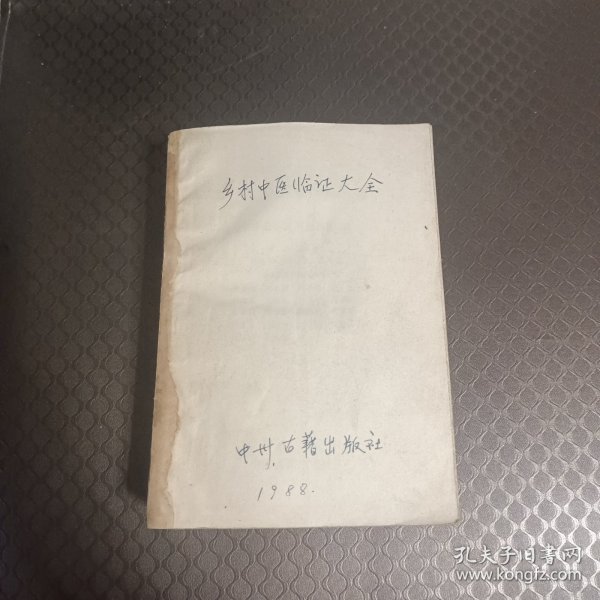 乡村中医临证大全
中州古籍出版社
1988.
孔夫子旧书网
www.kongfz.com